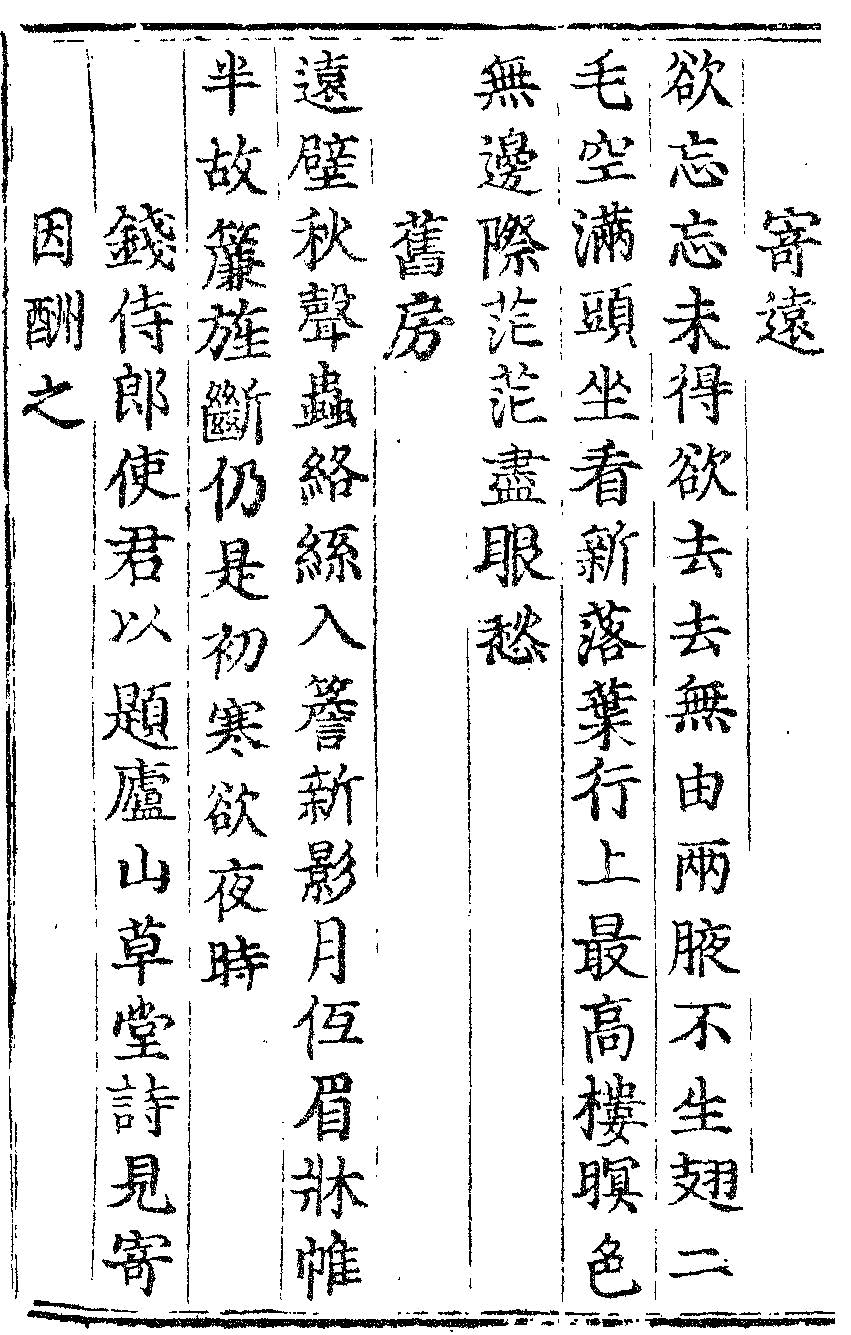 寄遠
欲忘忘未得欲去去無由兩腋不生翅二
毛空滿頭坐看新落葉行上最高樓暝色
無邊際茫茫盡眼愁
舊房
遠壁秋聲蟲絡絲入簷新影月低眉牀帷
半故簾旌斷仍是初寒欲夜時
錢侍郎使君以題廬山草堂詩見寄
因酬之